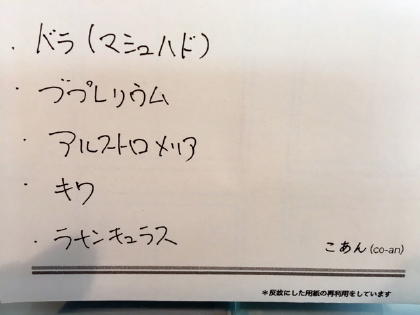 ・バラ(マシュハド)
・ブプレリウム
・アルストロメリア
・キワ
・ラナンキュラス
こあん(co-an)
＊反故にした用紙の再利用をしています